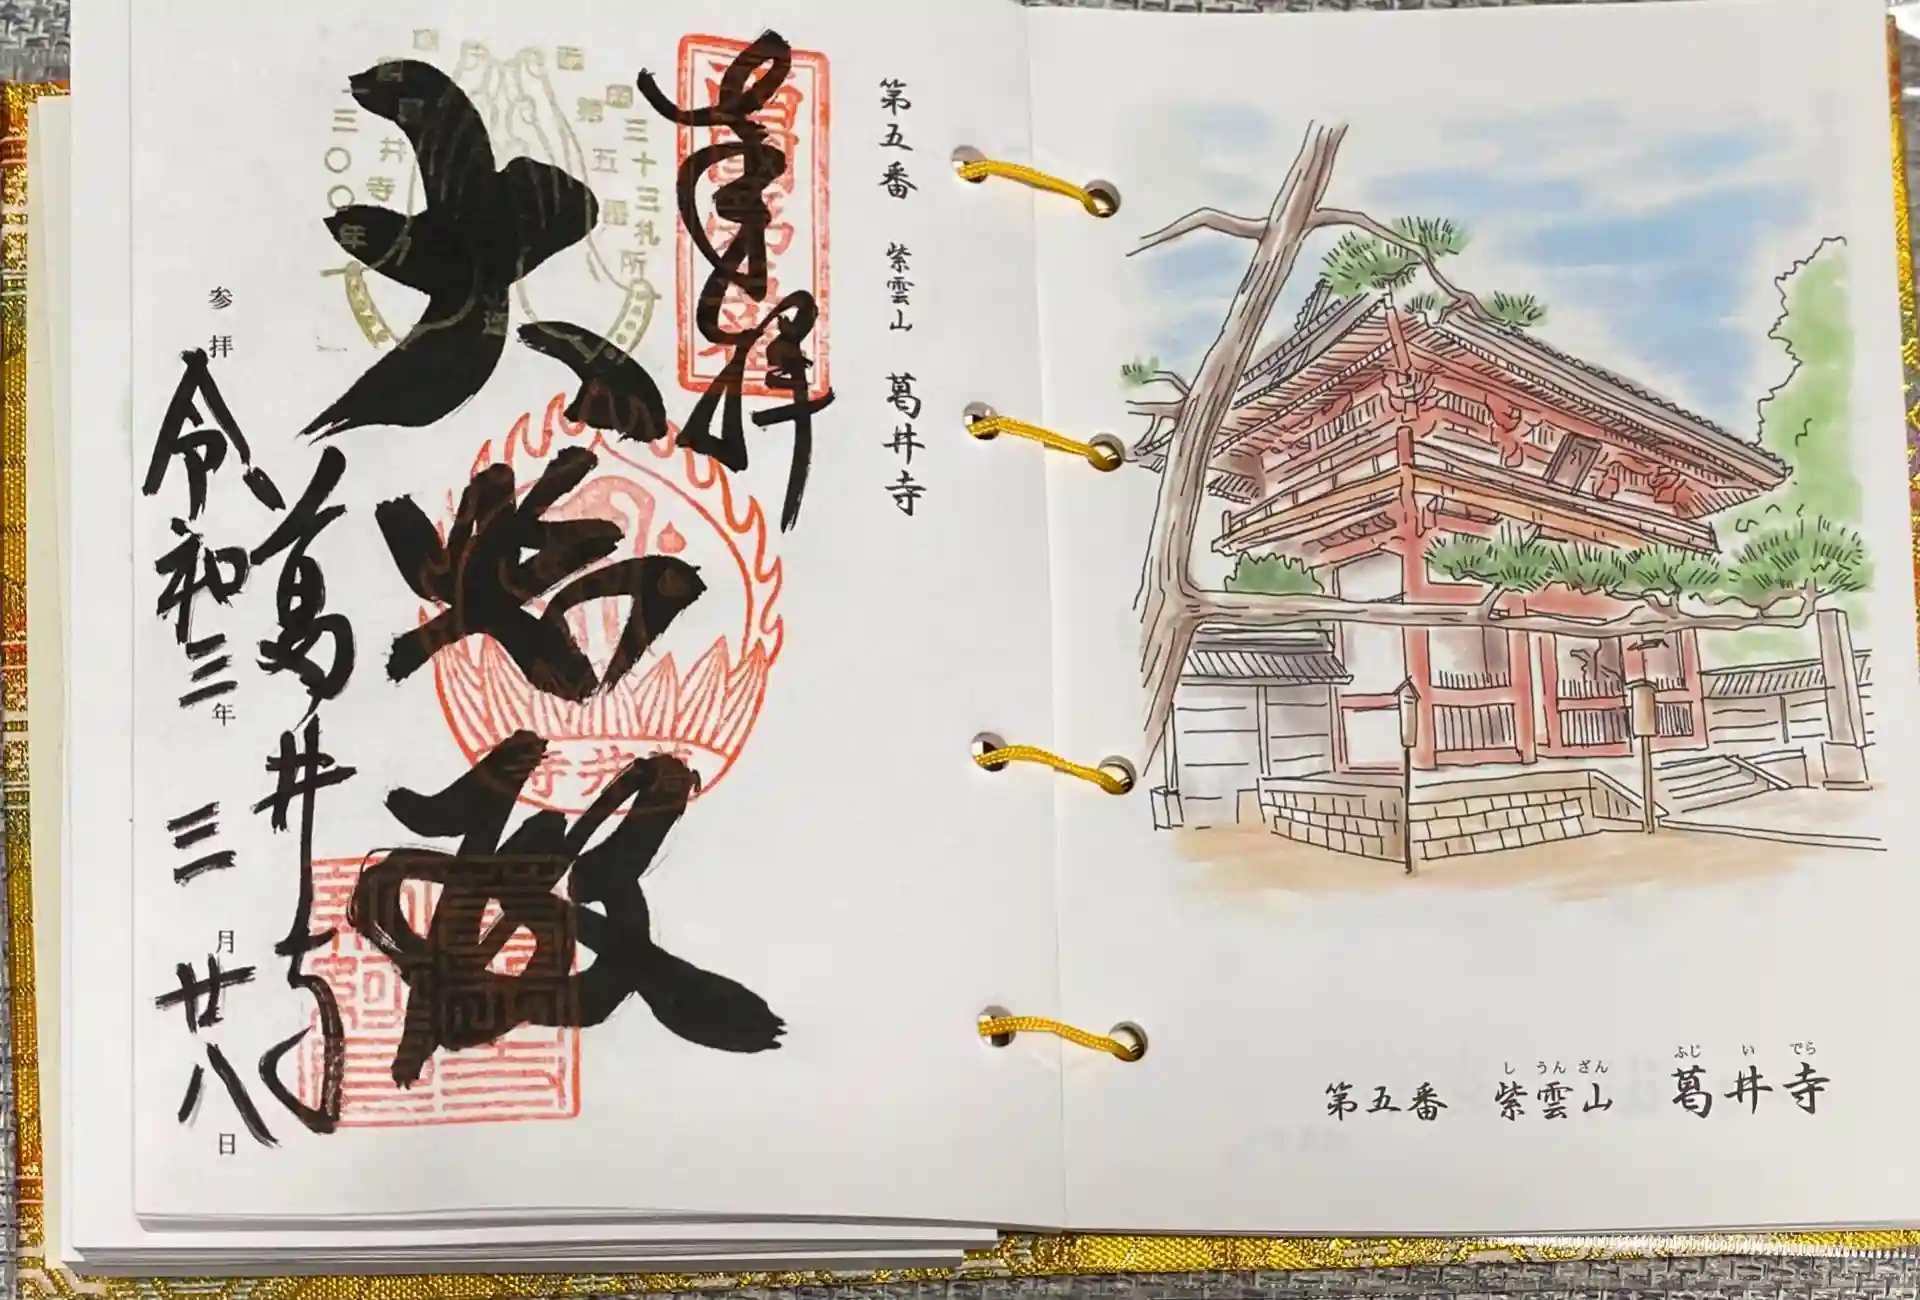 第五番 紫雲山 葛井寺
奉拝
大悲殿
葛井寺
参拝 令和三年 三月廿八日
三十三札所
第五番
井寺
一三〇〇年
葛井寺
ふじ い でら
し うん ざん
第五番 紫雲山 葛井寺